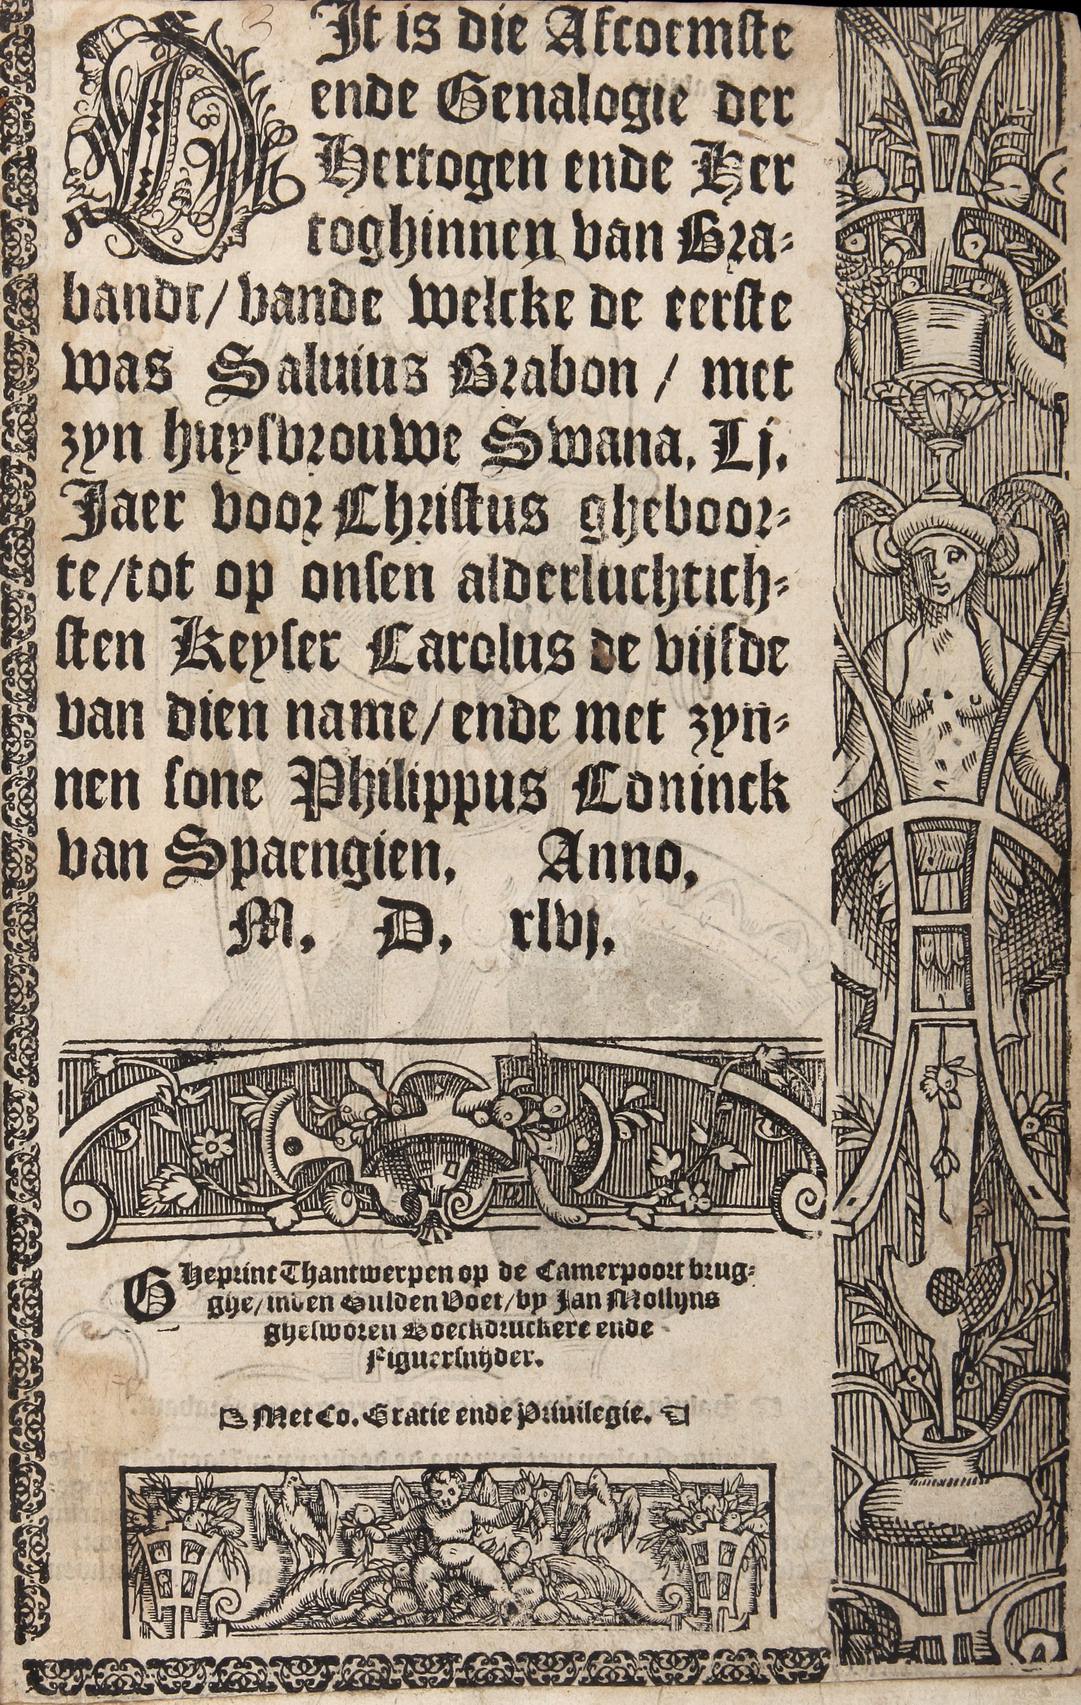 DJt is die Afcoemste
ende Genalogie der
Hertogen ende Her
toghinnen van Bra-
bandt/ vande welcke de eerste
was Saluius Brabon / met
zyn huysvrouwe Swana. Lj.
Jaer voor Christus gheboor-
te/tot op onsen alderluchtich-
sten Keyser Carolus de vijfde
van dien name/ ende met zyn-
nen sone Philippus Coninck
van Spaengien. Anno.
M. D. xlvj.
GHeprint Thantwerpen op de Camerpoort brug-
ghe/ inden Gulden Voet/ by Jan Mollijns
ghesworen Boeckdruckere ende
Figuersnijder.
Met Co. Gratie ende Priuilegie.